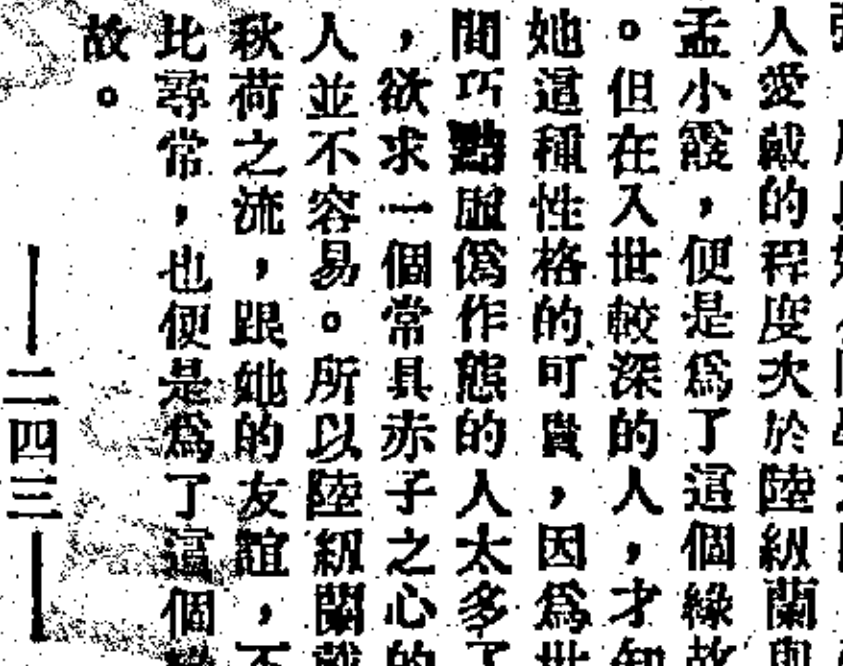 人愛戴的程度次於陸紉蘭與
孟小霞,便是為了這個緣故
。但在入世較深的人,才知
她這種性格的可貴,因為世
間巧黠虛僞作態的人太多了
,欲求一個常具赤子之心的
人並不容易。所以陸紉蘭戴
秋荷之流,跟她的友誼,不
比尋常,也便是為了這個
故。
——二四三——